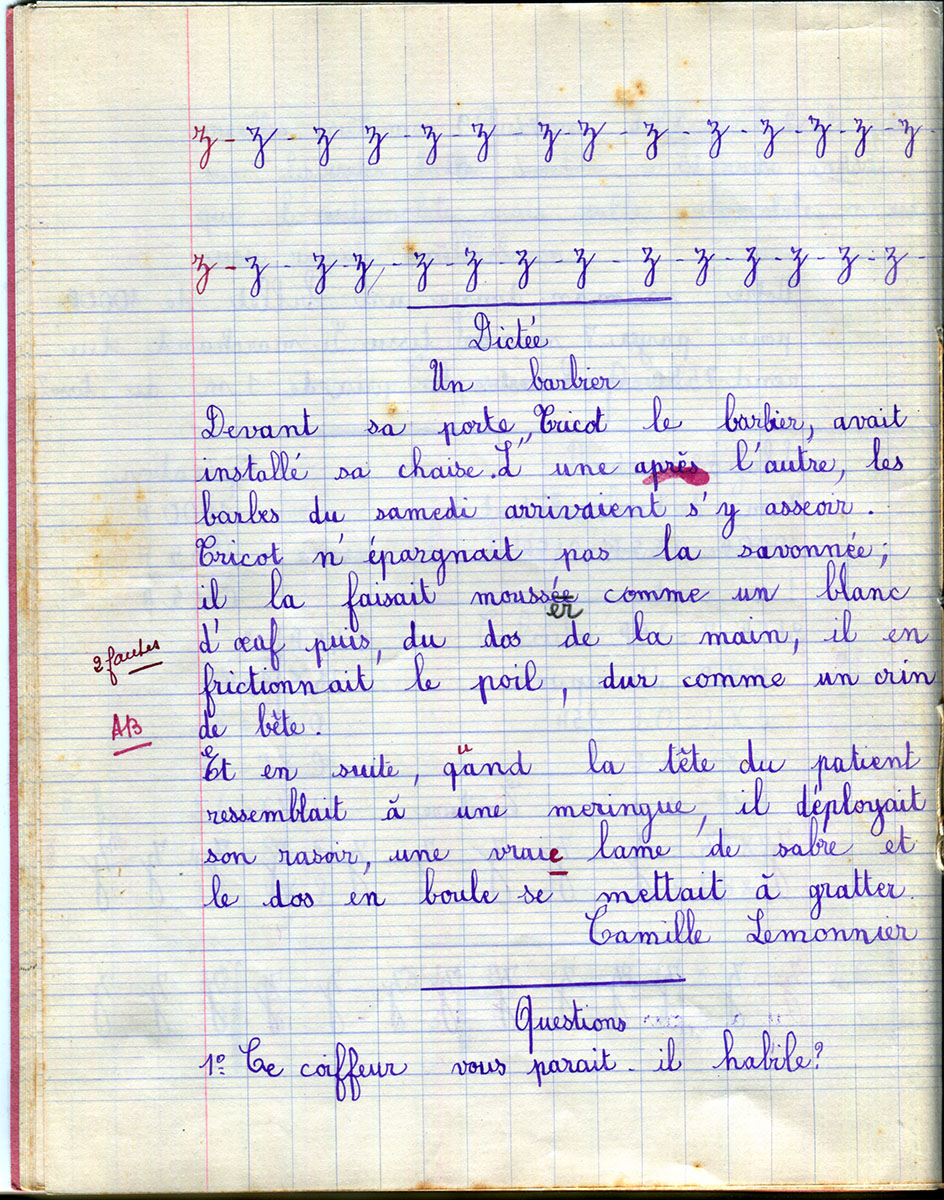 z - z - z z - z - z - z - z - z - z - z - z - z - z -
z - z - z z, - z - z - z - z - z - z - z - z - z - z -
Dictée
Un barbier
Devant sa porte, Tricot le barbier, avait
installé sa chaise. L'une après l'autre, les
barbes du samedi arrivaient s'y asseoir.
Tricot n'épargnait pas la savonnée;
il la faisait moussée comme un blanc
er
d'œuf puis, du dos de la main, il en
2 fautes
frictionnait le poil, dur comme un crin
AB de bête.
Et en suite, quand la tête du patient
ressemblait à une meringue, il déployait
son rasoir, une vraie lame de sabre et
le dos en boule se mettait à gratter.
Camille Lemonnier
Questions
1º Ce coiffeur vous parait-il habile?